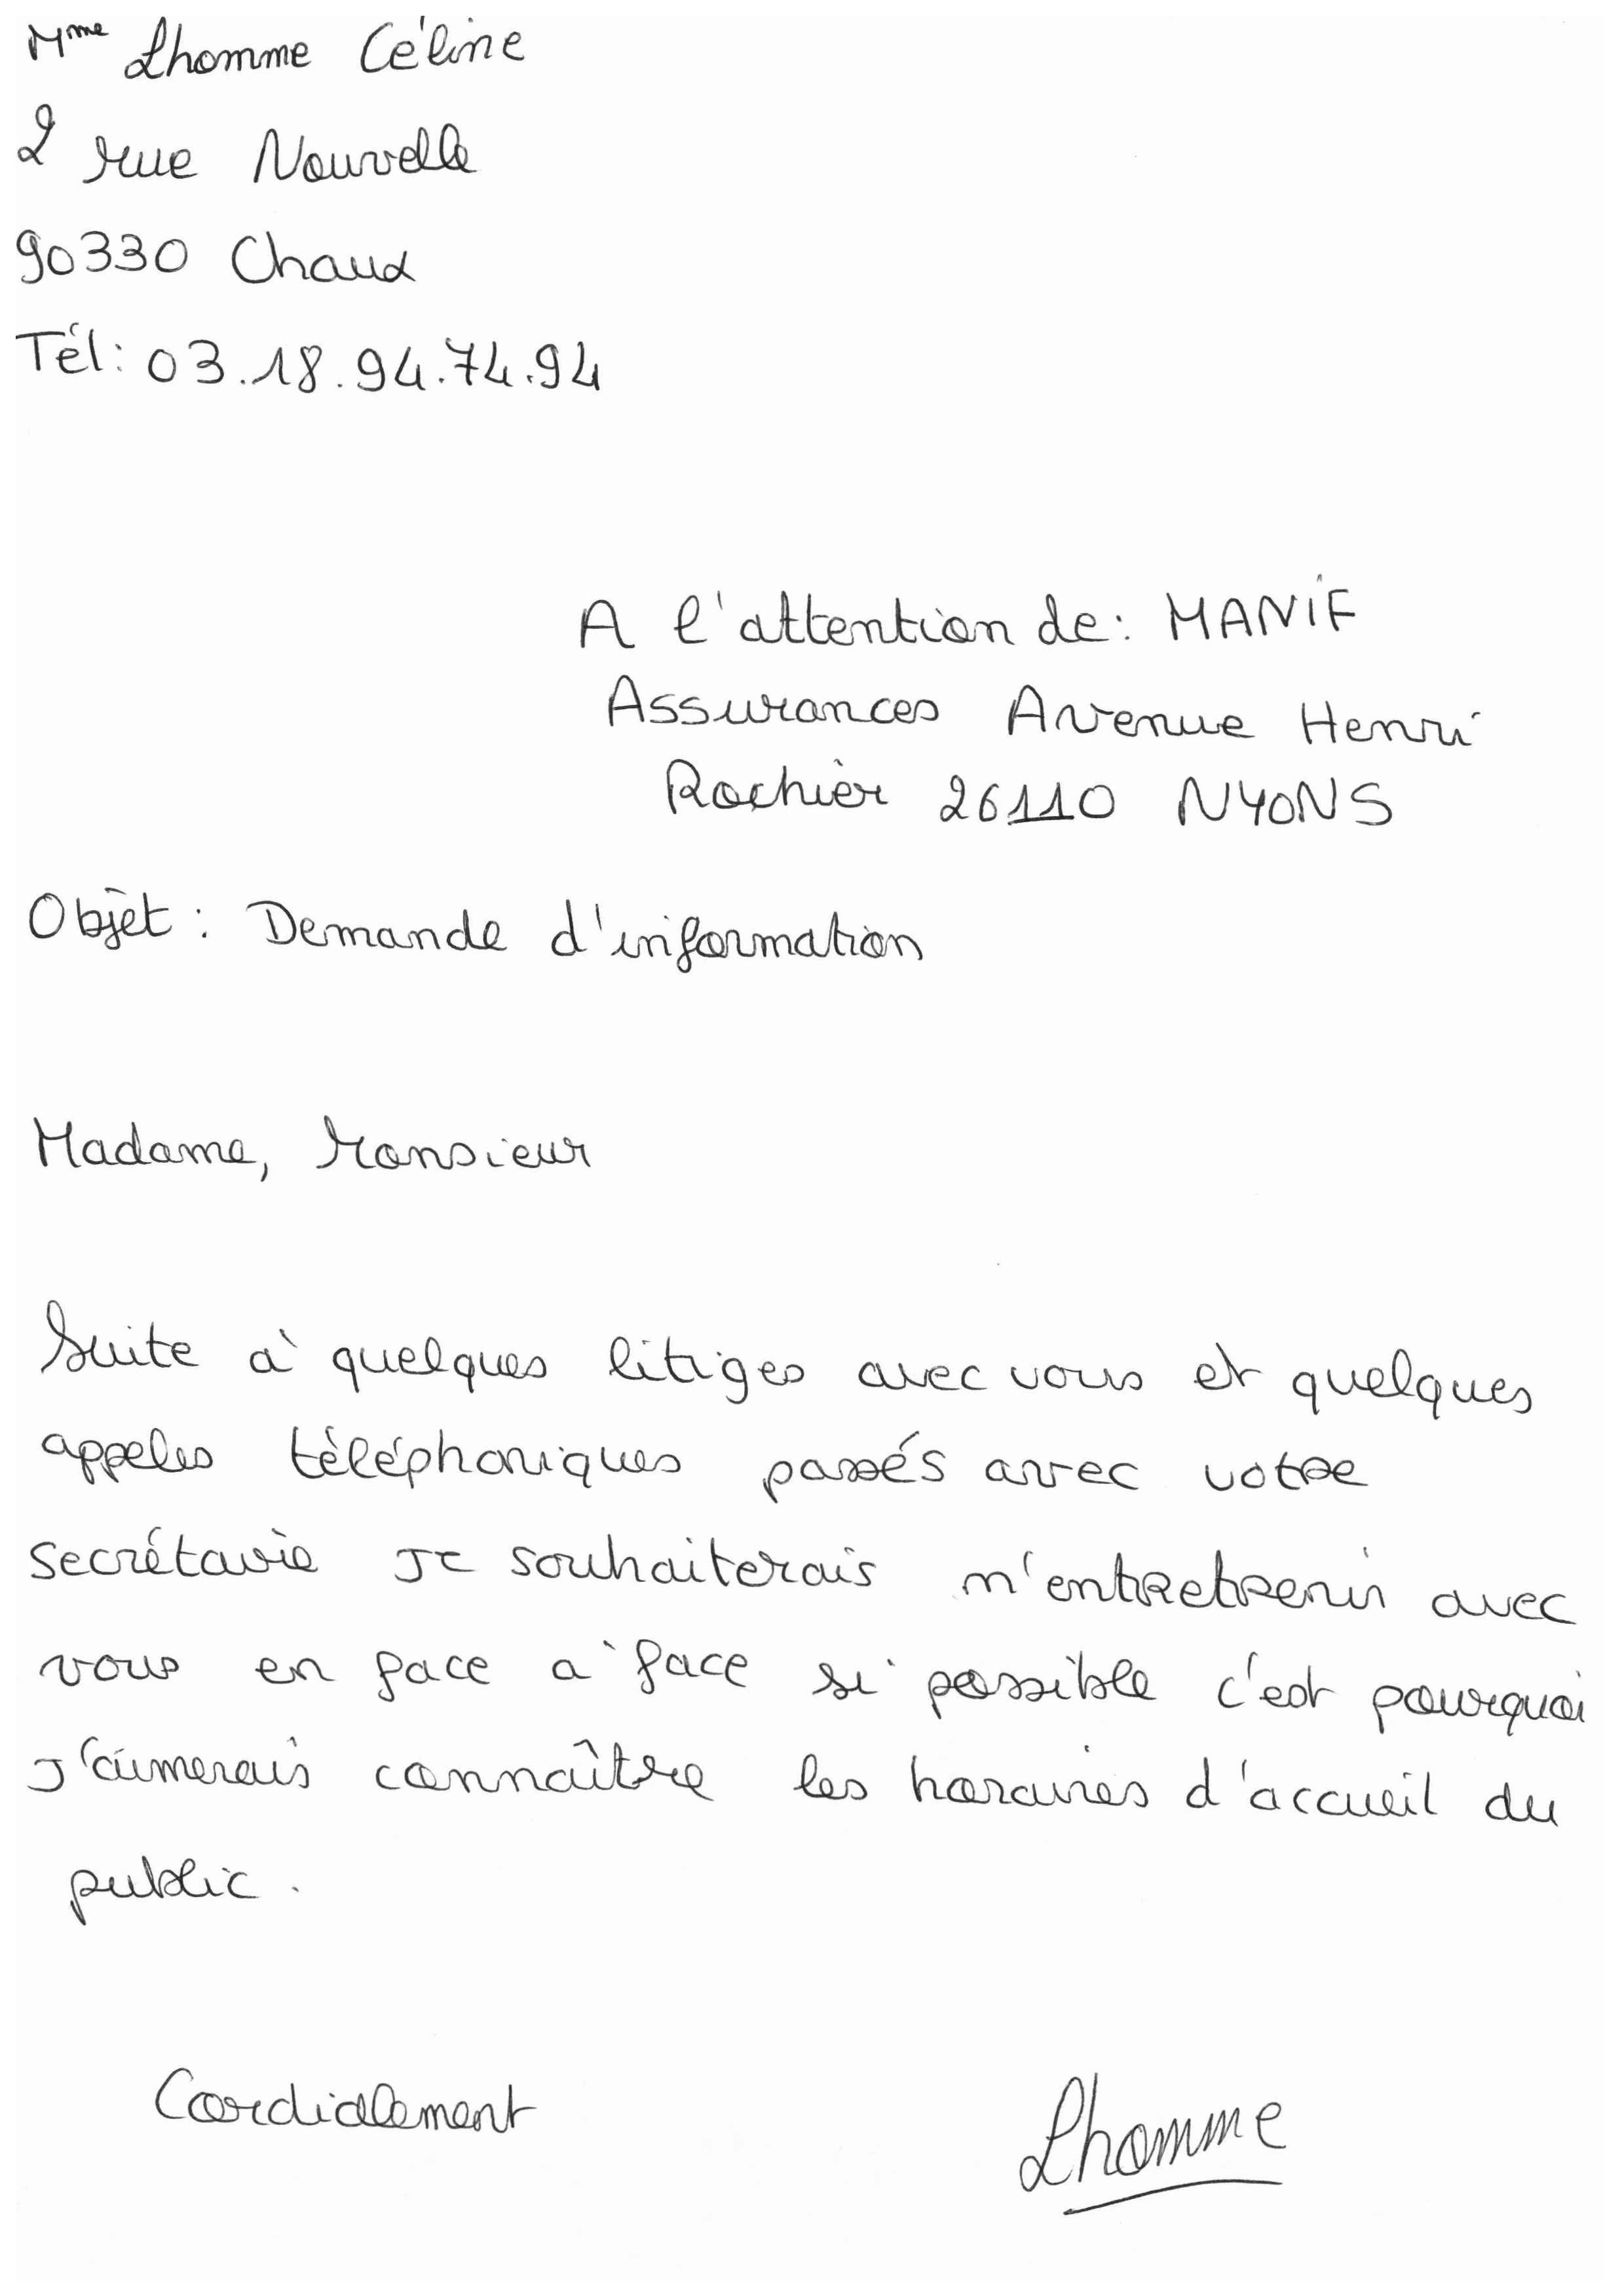 Mme Lhomme Céline
2 rue Nouvelle
90330 Chaux
Tél: 03.18.94.74.94
A l'attention de: MANIF
Assurances Avenue Henri
Rochier 26110 NYONS
Objet: Demande d'information
Madame, Monsieur
Suite à quelques litiges avec vous et quelques
appeles téléphoniques passés avec votre
secrétarie Je souhaiterais m'entretrenir avec
vous en face à face si possible c'est pourquoi
J'aimerais connaître les horaires d'accueil du
public.
Cordialement
Lhomme